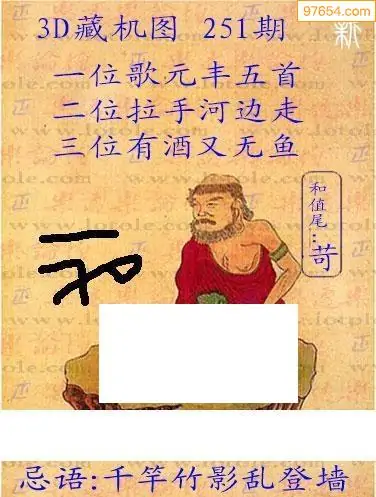 97654.com
3D藏机图 251期
新
一位歌元丰五首
二位拉手河边走
三位有酒又无鱼
和值尾:苛
www.lotole.com
忌语:千竿竹影乱登墙